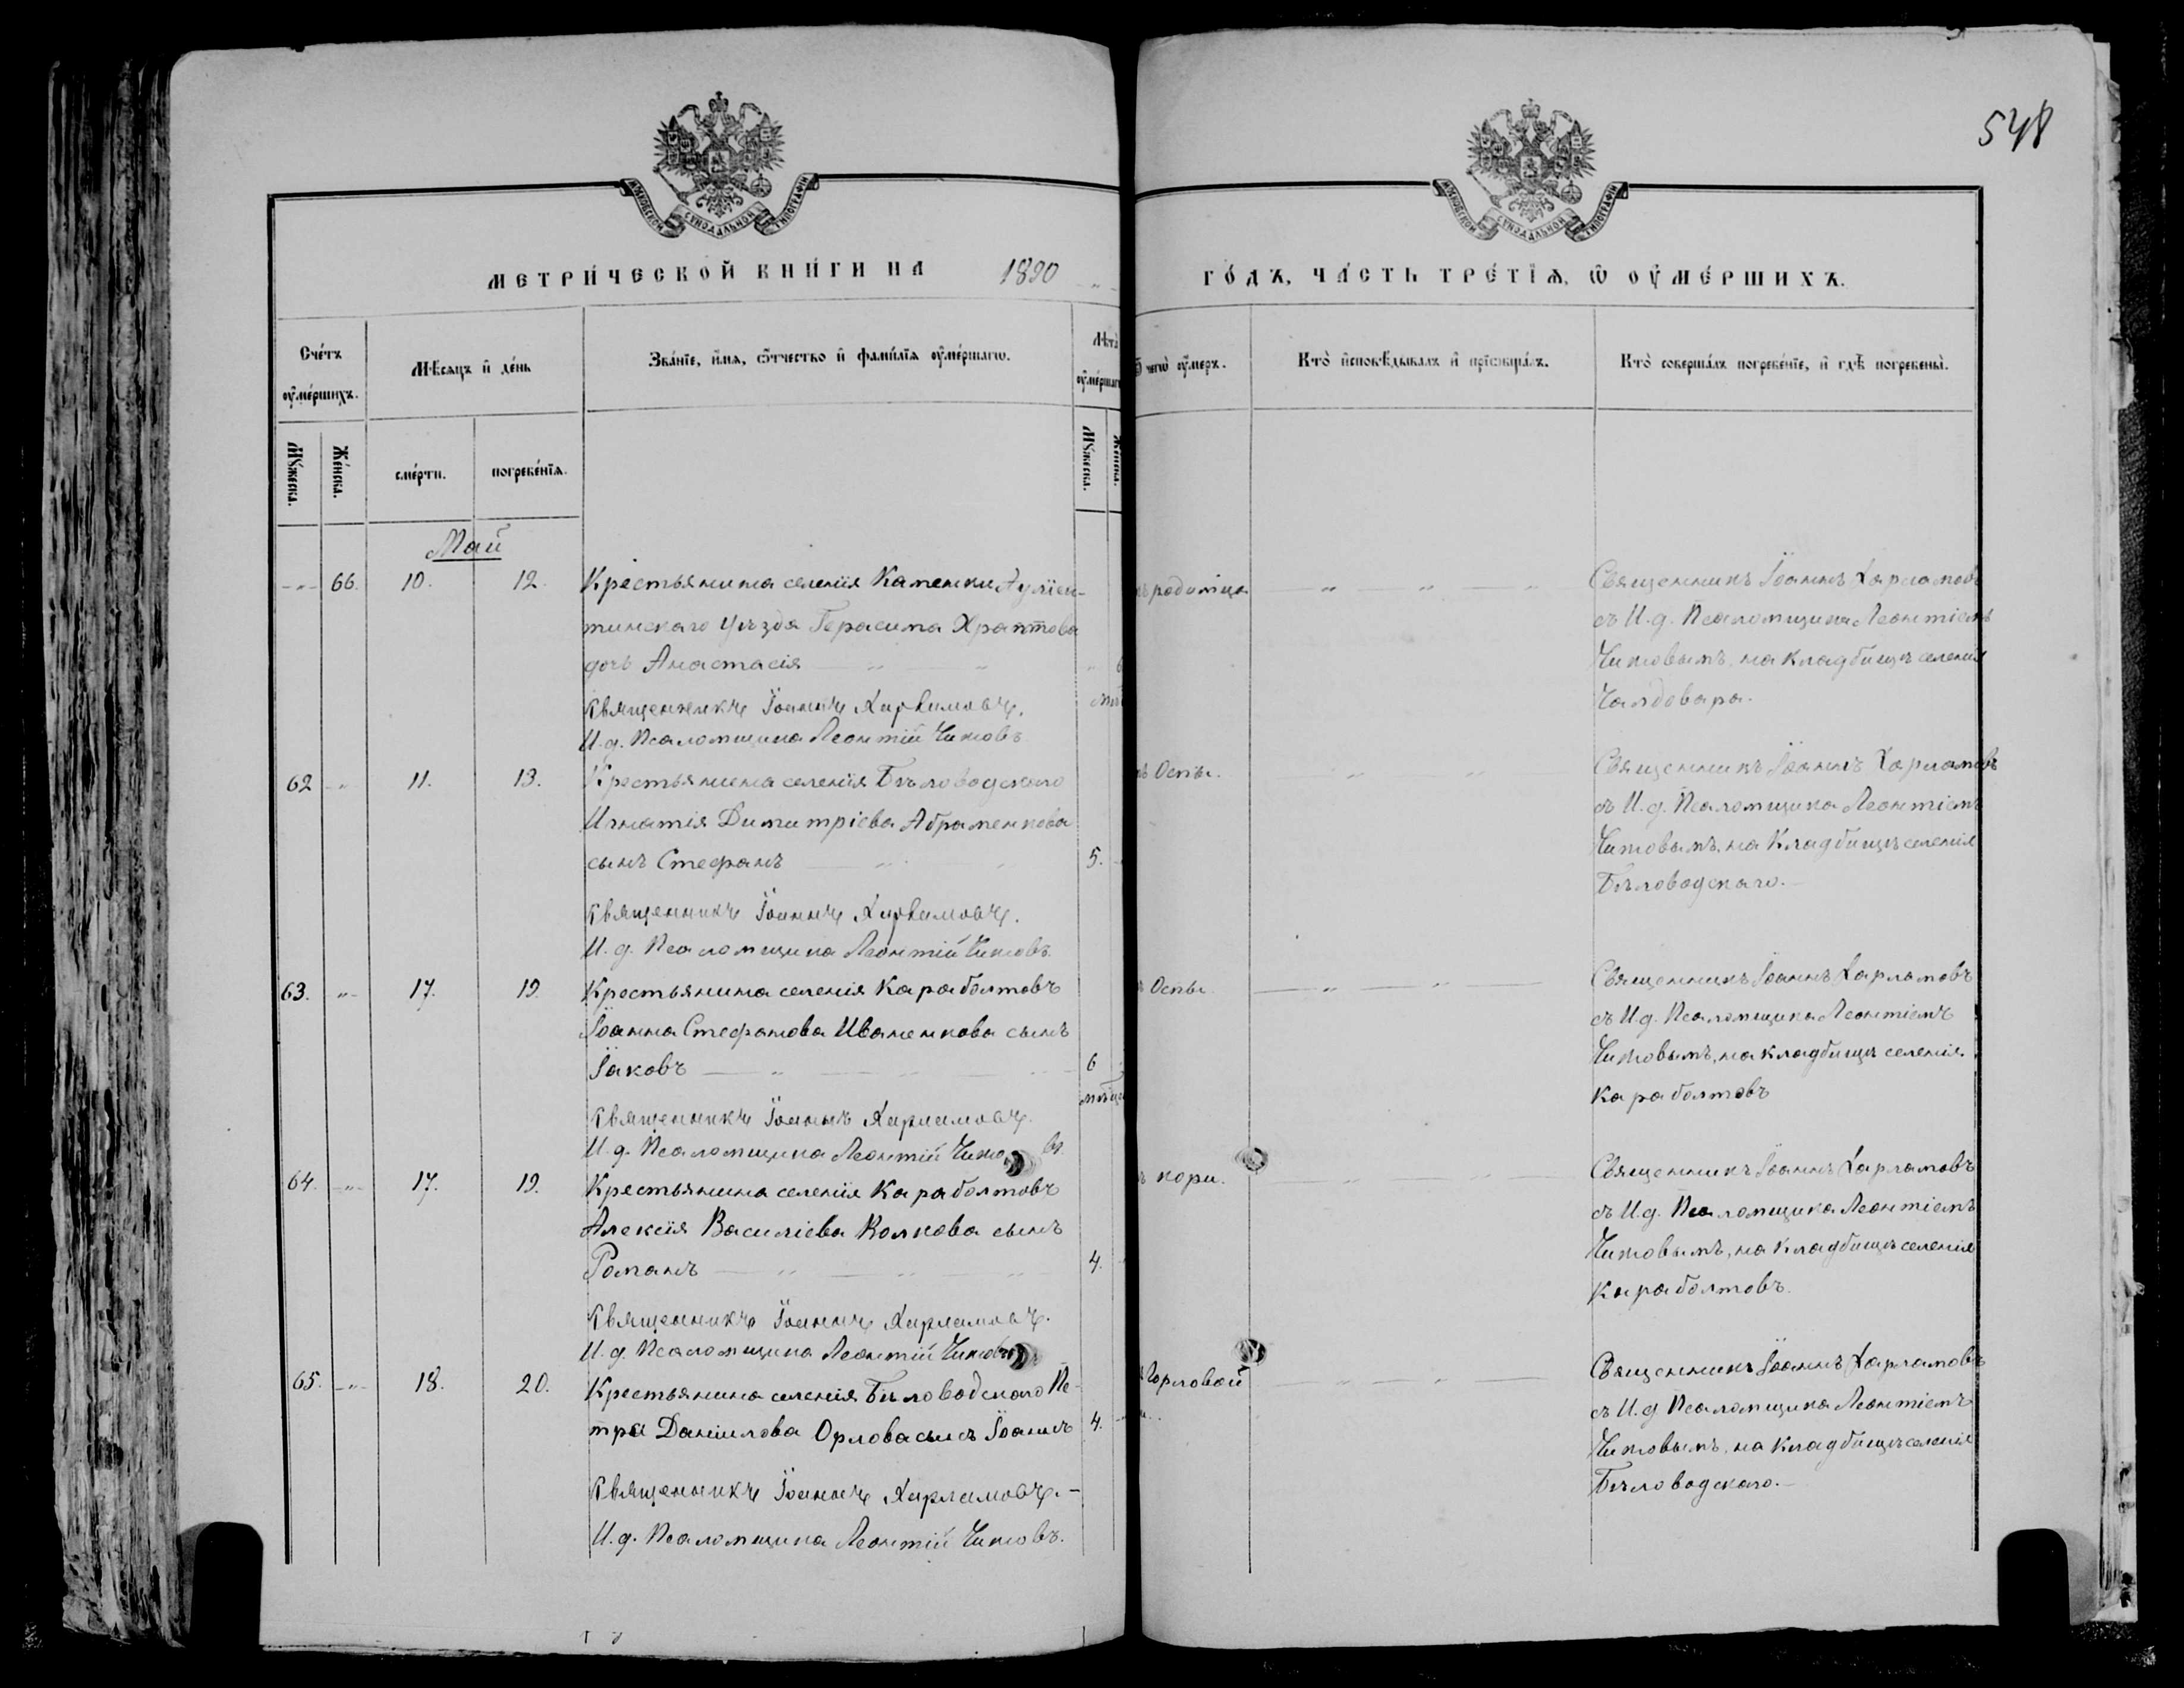 548
МОСКОВСКОЙ СУНОДАЛЬНОЙ ТИПОГРАФІИ
МОСКОВСКОЙ СУНОДАЛЬНОЙ ТИПОГРАФІИ
МЕТРИ́ЧЕСКОЙ КНИ́ГИ НА 1890 ГО́ДЪ, ЧА́СТЬ ТРЕ́ТІѦ, Ѿ ОУ҆МЕ́РШИХЪ.
Сче́тъ оу҆ме́ршихъ.
Мѣ́сяцъ и҆ де́нь
Зва́нїе, и҆́мѧ, ѻ҆́тчество и҆ фами́лїѧ оу҆ме́ршагѡ.
Лѣта̀ оу҆ме́ршагѡ
Ѿ чегѡ̀ оу҆́меръ.
Кто̀ и҆сповѣ́дывалъ и҆ прїѡбща́лъ.
Кто̀ соверша́лъ погребе́нїе, и҆ гдѣ̀ погребены̀.
Мꙋ́жеска.
Же́нска.
сме́рти.
погребе́нїѧ.
Мꙋ́жеска.
Же́нска.
Май
66. 10. 12. Крестьянина селенія Каменки Ауліеа-
тинскаго уѣзда Герасима Храптова
дочь Анастасія
Священникъ Іоаннъ Харламовъ.
И.д. Псаломщика Леонтій Читовъ
родимца
Священникъ Іоаннъ Харламовъ
съ И.д. Псаломщика Леонтіемъ
Читовымъ, на кладбищѣ селенія
Чалдовара.
62 " 11. 13. Крестьянина селенія Бѣловодскаго
Игнатія Димитріева Абраменкова
сынъ Стефанъ 5.
Священникъ Іоаннъ Харламовъ.
И.д. Псаломщика Леонтій Читовъ.
Оспы.
Священникъ Іоаннъ Харламовъ
съ И.д. Псаломщика Леонтіемъ
Читовымъ, на Кладбищѣ селенія
Бѣловодскаго.
63. " 17. 19. Крестьянина селенія Караболтовъ
Іоанна Стефанова Иваненкова сынъ
Іаковъ 6
Священникъ Іоаннъ Харламовъ.
И.д. Псаломщика Леонтій Читовъ
Оспы
Священникъ Іоаннъ Харламовъ
съ И.д. Псаломщика Леонтіемъ
Читовымъ, на кладбищѣ селенія
Караболтовъ
64. " 17. 19. Крестьянина селенія Караболтовъ
Алексія Василіева Волкова сынъ
Романъ 4.
Священникъ Іоаннъ Харламовъ.
И.д. Псаломщика Леонтій Читовъ
кори.
Священникъ Іоаннъ Харламовъ
съ И.д. Псаломщика Леонтіемъ
Читовымъ, на кладбищѣ селенія
Караболтовъ.
65. " 18. 20. Крестьянина селенія Бѣловодскаго Пе-
тра Даніилова Орлова сынъ Іоаннъ 4.
Священникъ Іоаннъ Харламовъ.
И.д. Псаломщика Леонтій Читовъ.
Горловой
Священникъ Іоаннъ Харламовъ
съ И.д. Псаломщика Леонтіемъ
Читовымъ, на кладбищѣ селенія
Бѣловодскаго.